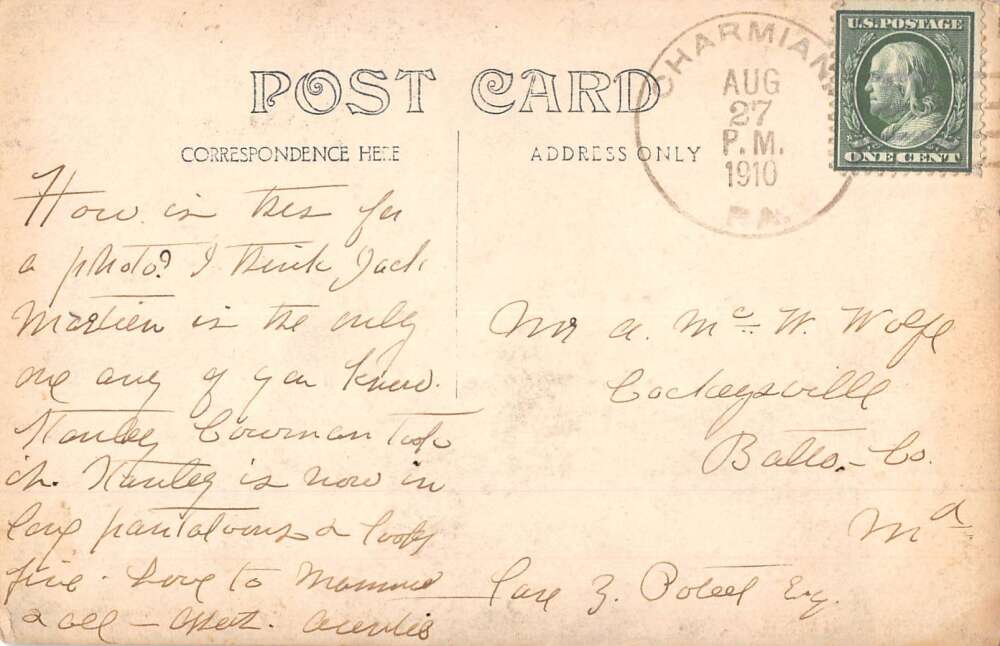 POST CARD
CORRESPONDENCE HERE
ADDRESS ONLY
CHARMIAN
AUG
27
P.M.
1910
PA.
U.S. POSTAGE
ONE CENT
How is this for
a photo? I think Jack
Martien is the only
one any of you know.
Stanley Bowman took
it. Stanley is now in
long pantaloons & looks
fine. Love to Mamma
& all – Auntie
Mr A. Mc W. Wolfe
Cockeysville
Balto. Co.
Md
Care Z. Poteet Esq.